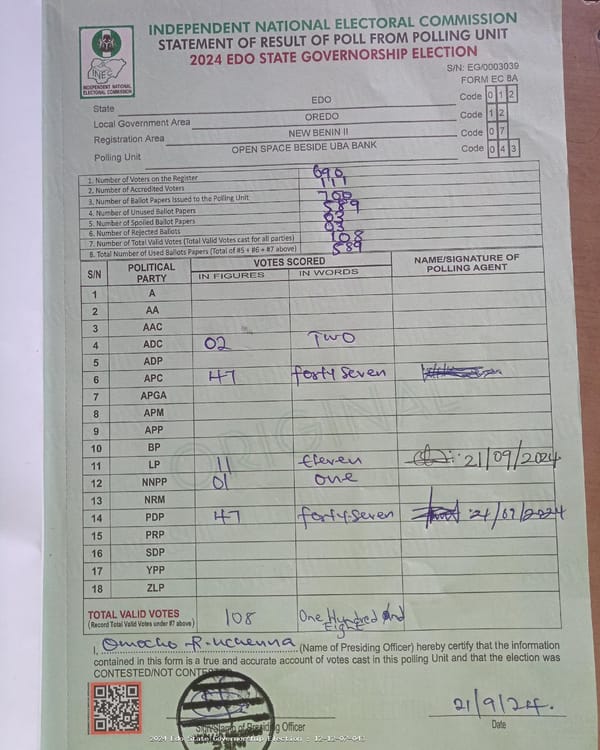 INDEPENDENT NATIONAL ELECTORAL COMMISSION
STATEMENT OF RESULT OF POLL FROM POLLING UNIT
2024 EDO STATE GOVERNORSHIP ELECTION
INEC
INDEPENDENT NATIONAL
ELECTORAL COMMISSION
S/N: EG/0003039
FORM EC 8A
State EDO Code 0 1 2
Local Government Area OREDO Code 1 2
Registration Area NEW BENIN II Code 0 7
Polling Unit OPEN SPACE BESIDE UBA BANK Code 0 4 3
1. Number of Voters on the Register 690
2. Number of Accredited Voters 111
3. Number of Ballot Papers Issued to the Polling Unit 700
4. Number of Unused Ballot Papers 589
5. Number of Spoiled Ballot Papers
6. Number of Rejected Ballots
7. Number of Total Valid Votes (Total Valid Votes cast for all parties) 108
8. Total Number of Used Ballots Papers (Total of #5 + #6 + #7 above) 589
S/N POLITICAL PARTY VOTES SCORED NAME/SIGNATURE OF POLLING AGENT
IN FIGURES IN WORDS
1 A
2 AA
3 AAC
4 ADC 02 Two
5 ADP
6 APC 47 forty seven
7 APGA
8 APM
9 APP
10 BP
11 LP 11 Eleven 21/09/2024
12 NNPP 01 one
13 NRM
14 PDP 47 forty seven 21/09/2024
15 PRP
16 SDP
17 YPP
18 ZLP
ORIGINAL
TOTAL VALID VOTES 108 One Hundred And Eight
(Record Total Valid Votes under #7 above)
I, Omocho R. Uchenna (Name of Presiding Officer) hereby certify that the information
contained in this form is a true and accurate account of votes cast in this polling Unit and that the election was
CONTESTED/NOT CONTESTED
21/9/24.
Signature of Presiding Officer Date
2024 Edo State Governorship Election - 12-12-07-043